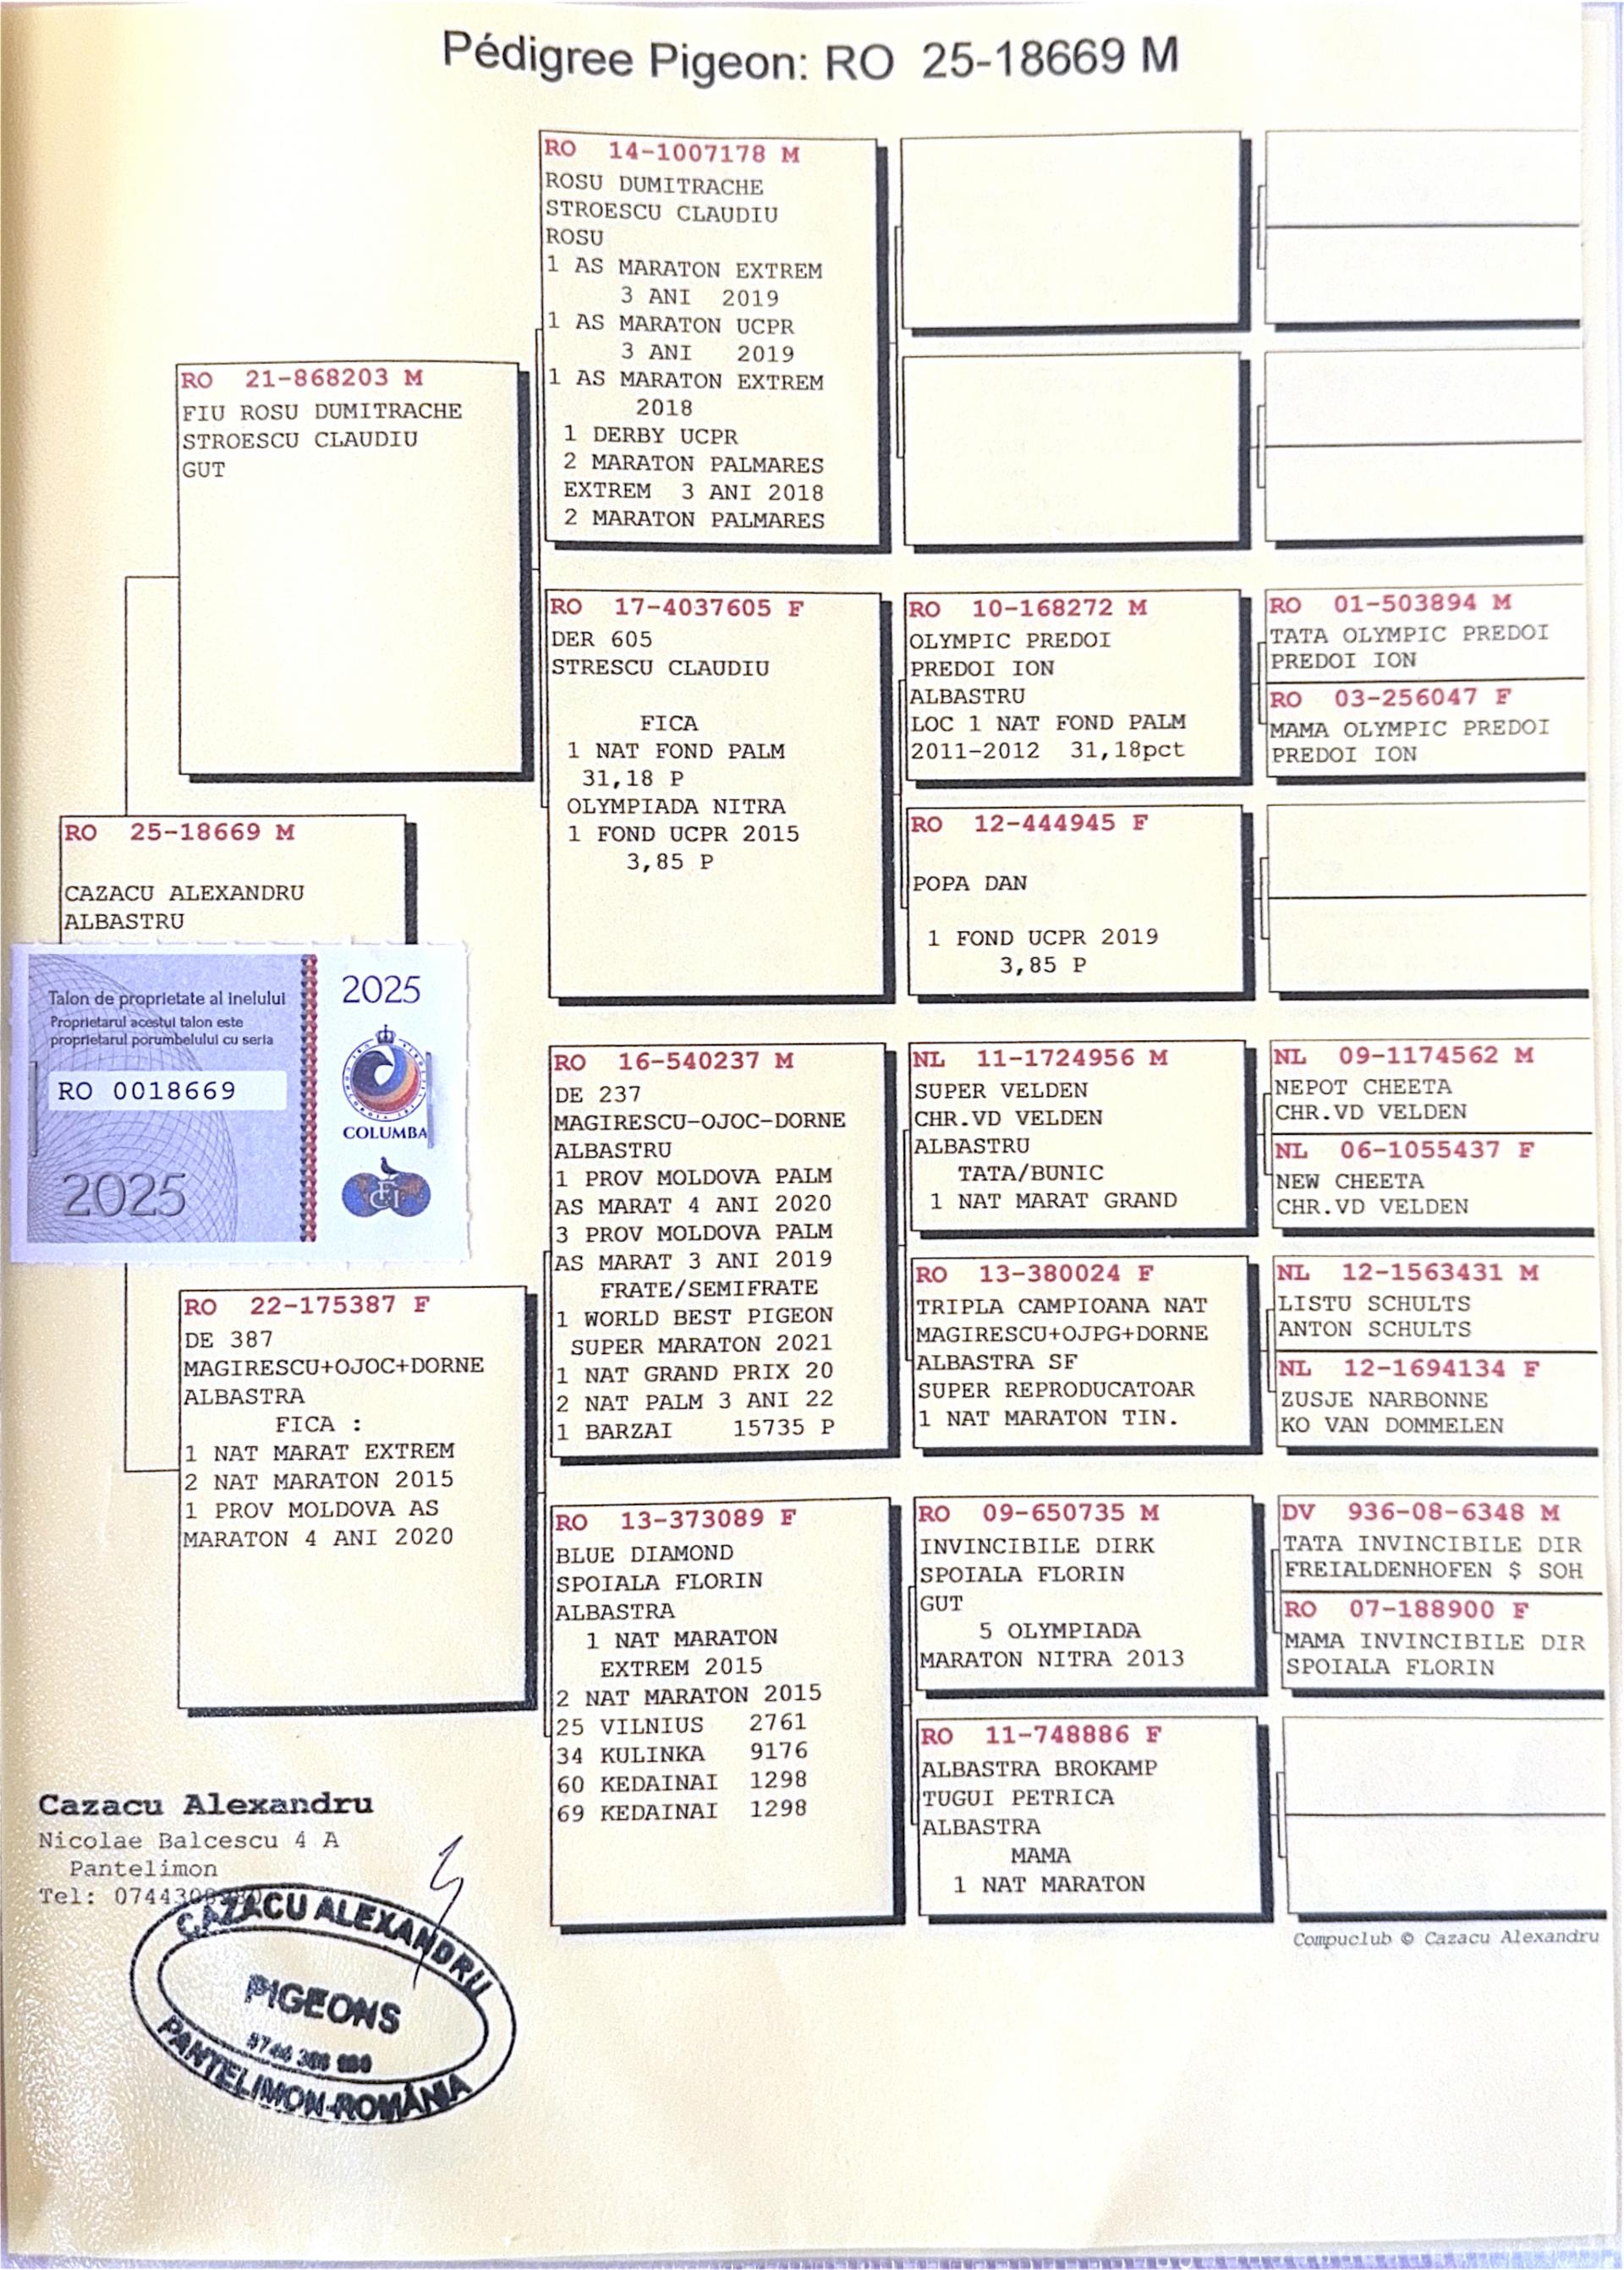 Pédigree Pigeon: RO 25-18669 M
RO 25-18669 M
CAZACU ALEXANDRU
ALBASTRU
Talon de proprietate al inelului
Proprietarul acestui talon este
proprietarul porumbelului cu seria
RO 0018669
2025
2025
COLUMBA
FCI
RO 21-868203 M
FIU ROSU DUMITRACHE
STROESCU CLAUDIU
GUT
RO 22-175387 F
DE 387
MAGIRESCU+OJOC+DORNE
ALBASTRA
FICA :
1 NAT MARAT EXTREM
2 NAT MARATON 2015
1 PROV MOLDOVA AS
MARATON 4 ANI 2020
RO 14-1007178 M
ROSU DUMITRACHE
STROESCU CLAUDIU
ROSU
1 AS MARATON EXTREM
3 ANI 2019
1 AS MARATON UCPR
3 ANI 2019
1 AS MARATON EXTREM
2018
1 DERBY UCPR
2 MARATON PALMARES
EXTREM 3 ANI 2018
2 MARATON PALMARES
RO 17-4037605 F
DER 605
STRESCU CLAUDIU
FICA
1 NAT FOND PALM
31,18 P
OLYMPIADA NITRA
1 FOND UCPR 2015
3,85 P
RO 16-540237 M
DE 237
MAGIRESCU-OJOC-DORNE
ALBASTRU
1 PROV MOLDOVA PALM
AS MARAT 4 ANI 2020
3 PROV MOLDOVA PALM
AS MARAT 3 ANI 2019
FRATE/SEMIFRATE
1 WORLD BEST PIGEON
SUPER MARATON 2021
1 NAT GRAND PRIX 20
2 NAT PALM 3 ANI 22
1 BARZAI 15735 P
RO 13-373089 F
BLUE DIAMOND
SPOIALA FLORIN
ALBASTRA
1 NAT MARATON
EXTREM 2015
2 NAT MARATON 2015
25 VILNIUS 2761
34 KULINKA 9176
60 KEDAINAI 1298
69 KEDAINAI 1298
RO 10-168272 M
OLYMPIC PREDOI
PREDOI ION
ALBASTRU
LOC 1 NAT FOND PALM
2011-2012 31,18pct
RO 12-444945 F
POPA DAN
1 FOND UCPR 2019
3,85 P
NL 11-1724956 M
SUPER VELDEN
CHR.VD VELDEN
ALBASTRU
TATA/BUNIC
1 NAT MARAT GRAND
RO 13-380024 F
TRIPLA CAMPIOANA NAT
MAGIRESCU+OJPG+DORNE
ALBASTRA SF
SUPER REPRODUCATOAR
1 NAT MARATON TIN.
RO 09-650735 M
INVINCIBILE DIRK
SPOIALA FLORIN
GUT
5 OLYMPIADA
MARATON NITRA 2013
RO 11-748886 F
ALBASTRA BROKAMP
TUGUI PETRICA
ALBASTRA
MAMA
1 NAT MARATON
RO 01-503894 M
TATA OLYMPIC PREDOI
PREDOI ION
RO 03-256047 F
MAMA OLYMPIC PREDOI
PREDOI ION
NL 09-1174562 M
NEPOT CHEETA
CHR.VD VELDEN
NL 06-1055437 F
NEW CHEETA
CHR.VD VELDEN
NL 12-1563431 M
LISTU SCHULTS
ANTON SCHULTS
NL 12-1694134 F
ZUSJE NARBONNE
KO VAN DOMMELEN
DV 936-08-6348 M
TATA INVINCIBILE DIR
FREIALDENHOFEN $ SOH
RO 07-188900 F
MAMA INVINCIBILE DIR
SPOIALA FLORIN
Compuclub © Cazacu Alexandru
Cazacu Alexandru
Nicolae Balcescu 4 A
Pantelimon
Tel:
CAZACU ALEXANDRU
PIGEONS
PANTELIMON-ROMÂNIA